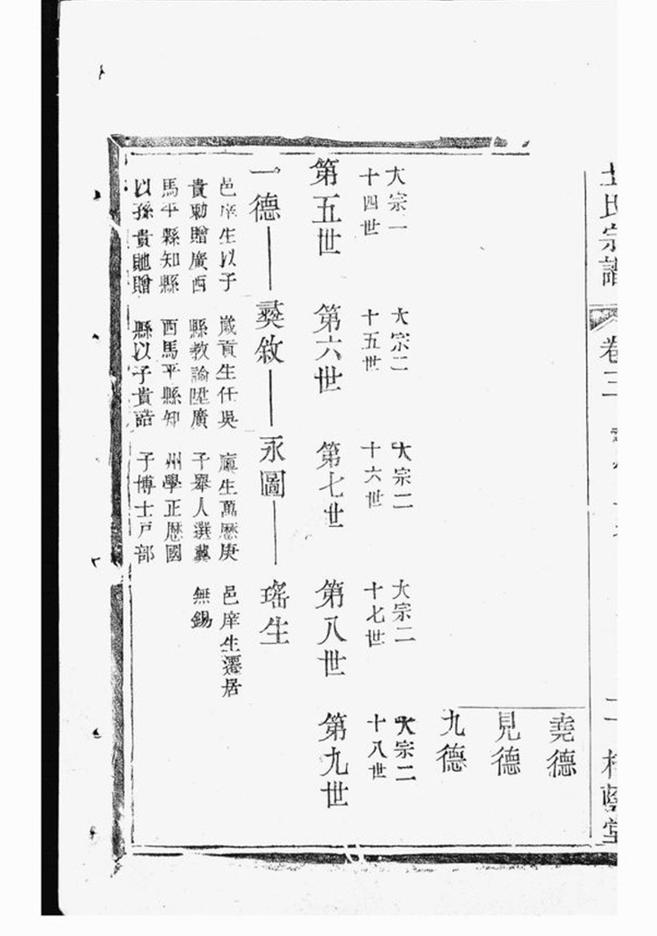 氏宗譜
卷三
二
堂
堯德
見德
九德
大宗一
十四世
大宗二
十五世
大宗二
十六世
大宗二
十七世
大宗二
十八世
第五世
第六世
第七世
第八世
第九世
一德
彝敘
永圖
瑤生
邑庠生以子
貴勅贈廣西
馬平縣知縣
以孫貴貤贈
歲貢生任吳
縣教諭陞廣
西馬平縣知
縣以子貴誥
廩生萬厯庚
子舉人選冀
州學正厯國
子博士戸部
邑庠生遷居
無錫